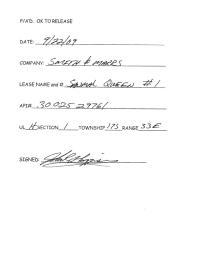 P/A'D. OK TO RELEASE
DATE: 9/22/09
COMPANY: SMITH & MARRS
LEASE NAME and #: QUEEN #1
API#: 30 025 29761
UL H SECTION 1 TOWNSHIP 17S RANGE 33E
SIGNED: